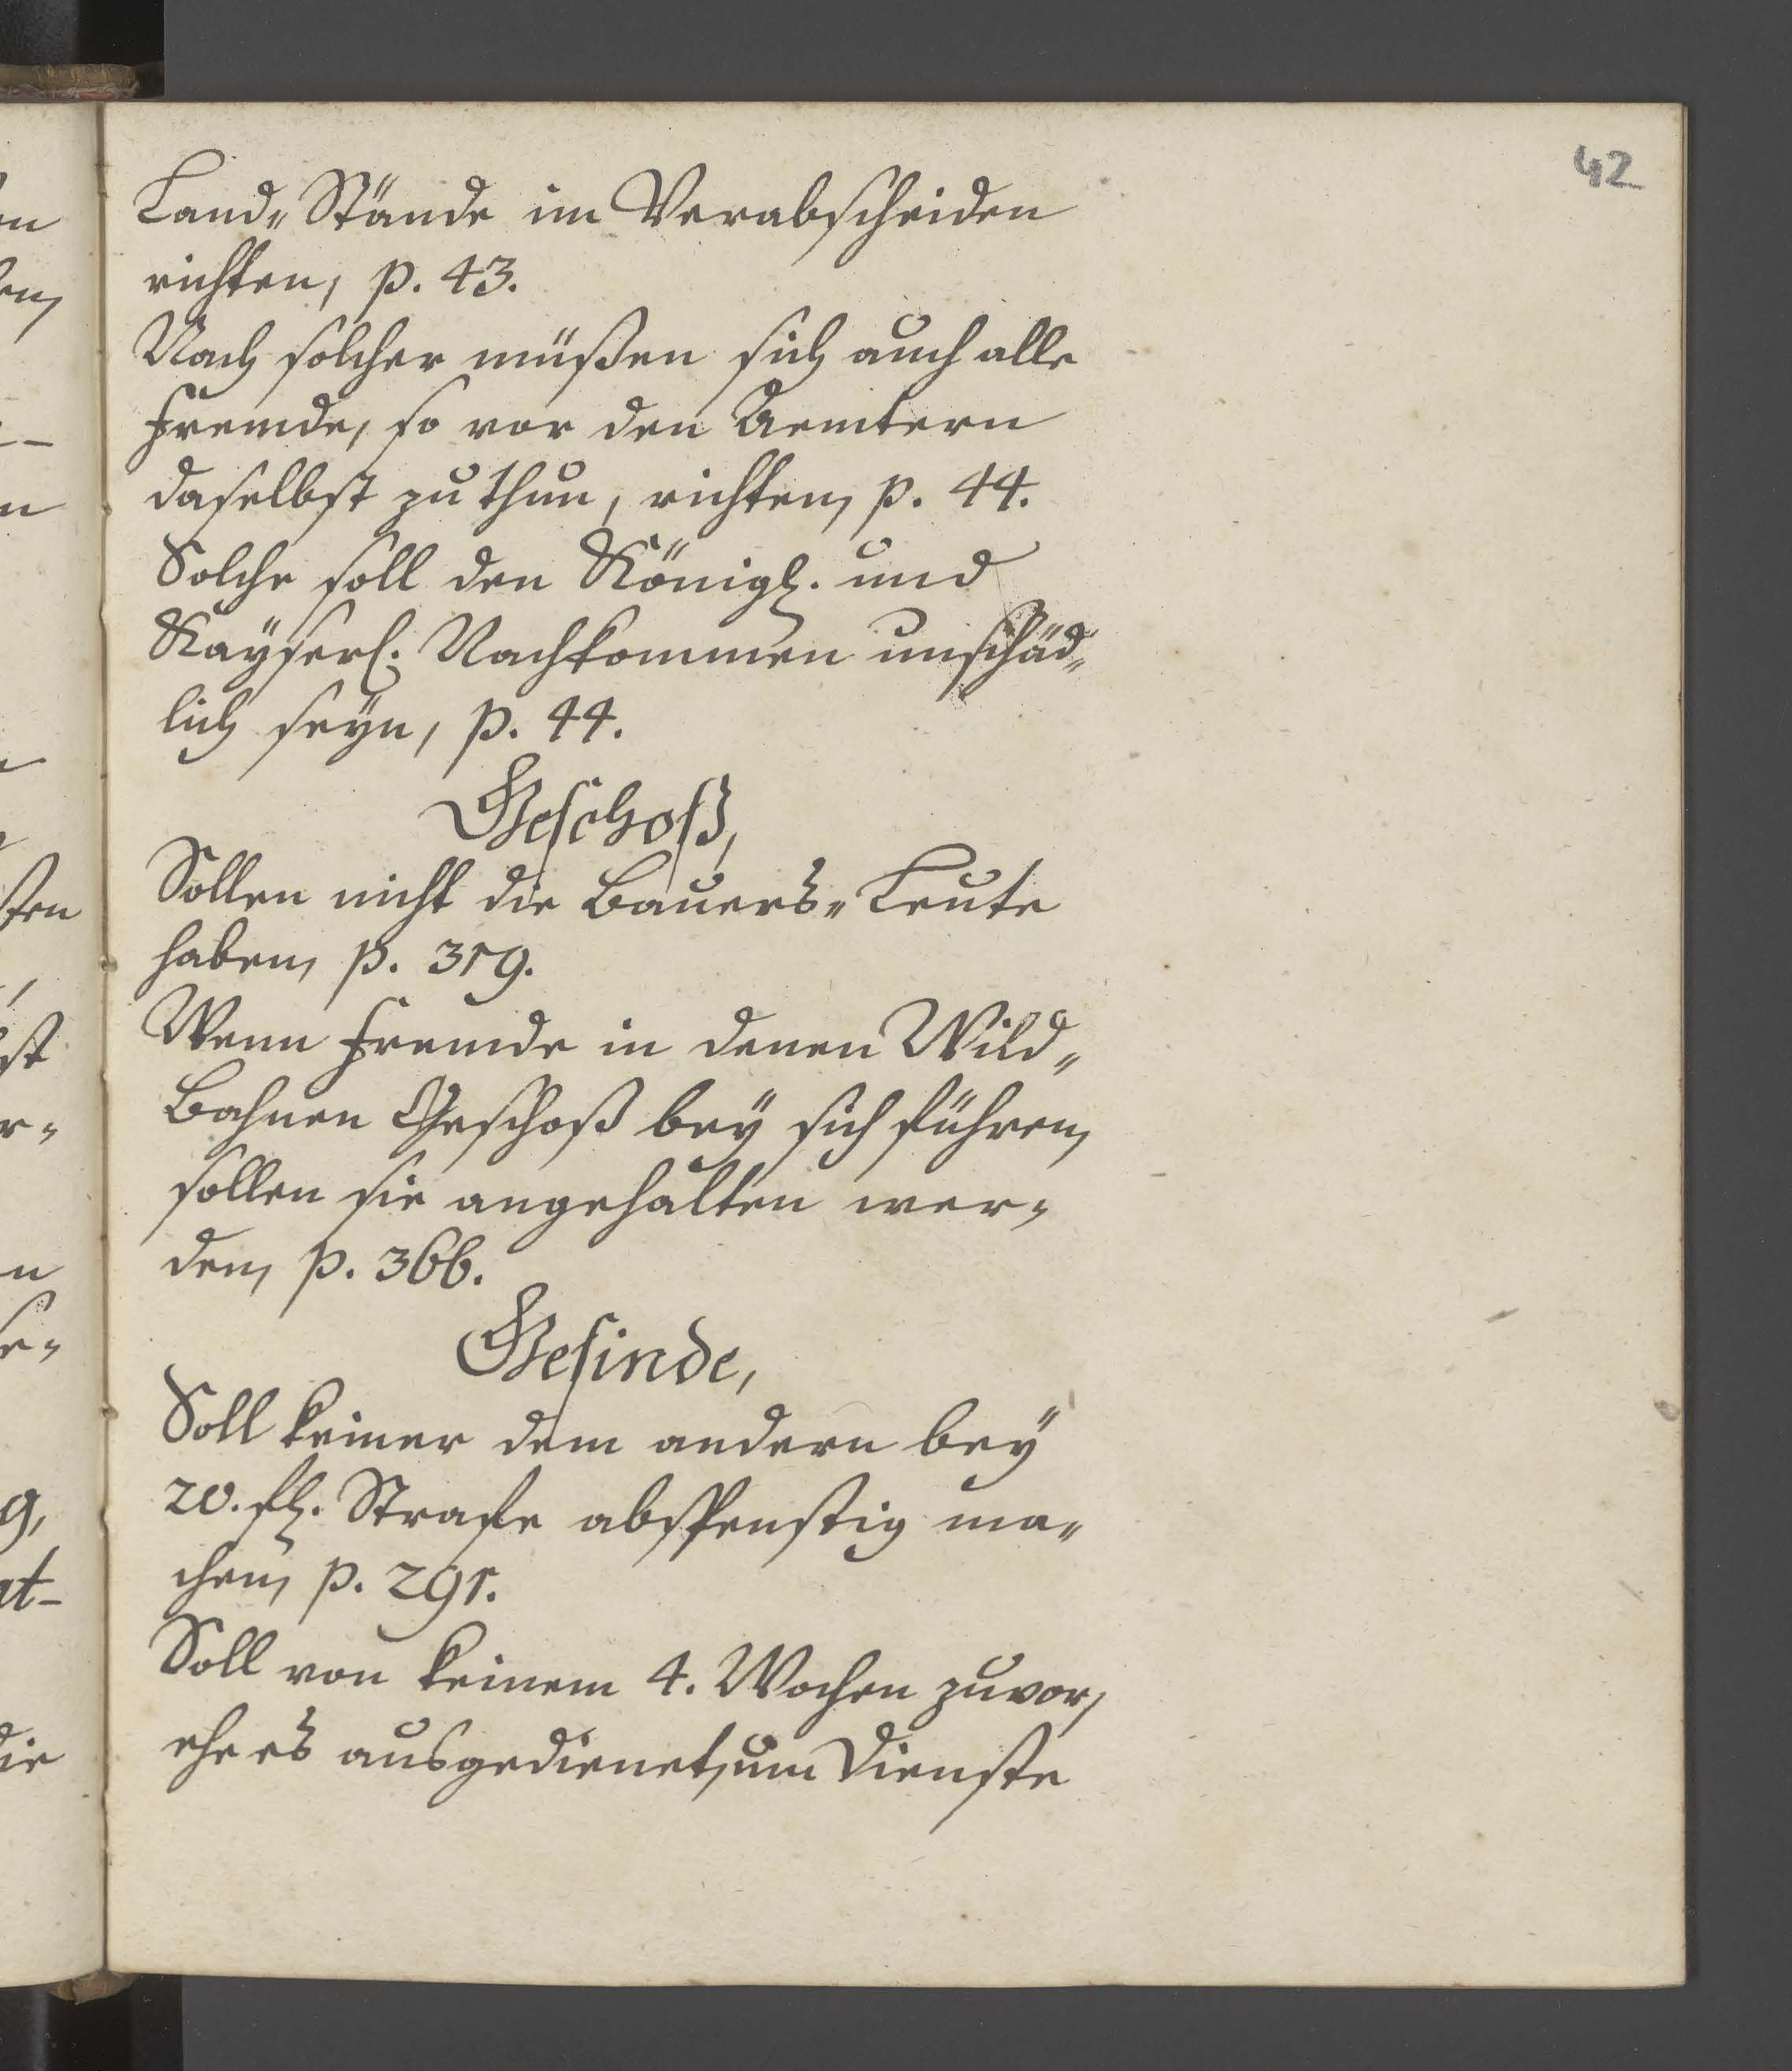 42
Land„Stände im Verabscheiden
richten, p. 43.
Nach solcher müßen sich auch alle
Fremde, so vor den Aemtern
daselbst zu thun, richten, p. 44.
Solche soll den Königl. und
Kayserl. Nachkommen unschäd„
lich seyn, p. 44.
Geschoß,
Sollen nicht die Bauers„Leute
haben, p. 319.
Wenn Fremde in denen Wild„
Bahnen Geschoß bey sich führen,
sollen sie angehalten wer„
den, p. 366.
Gesinde,
Soll keiner dem andern bey
20. fl. Strafe abspenstig ma„
chen, p. 291.
Soll von keinem 4. Wochen zuvor,
ehe es ausgedienet, um Dienste